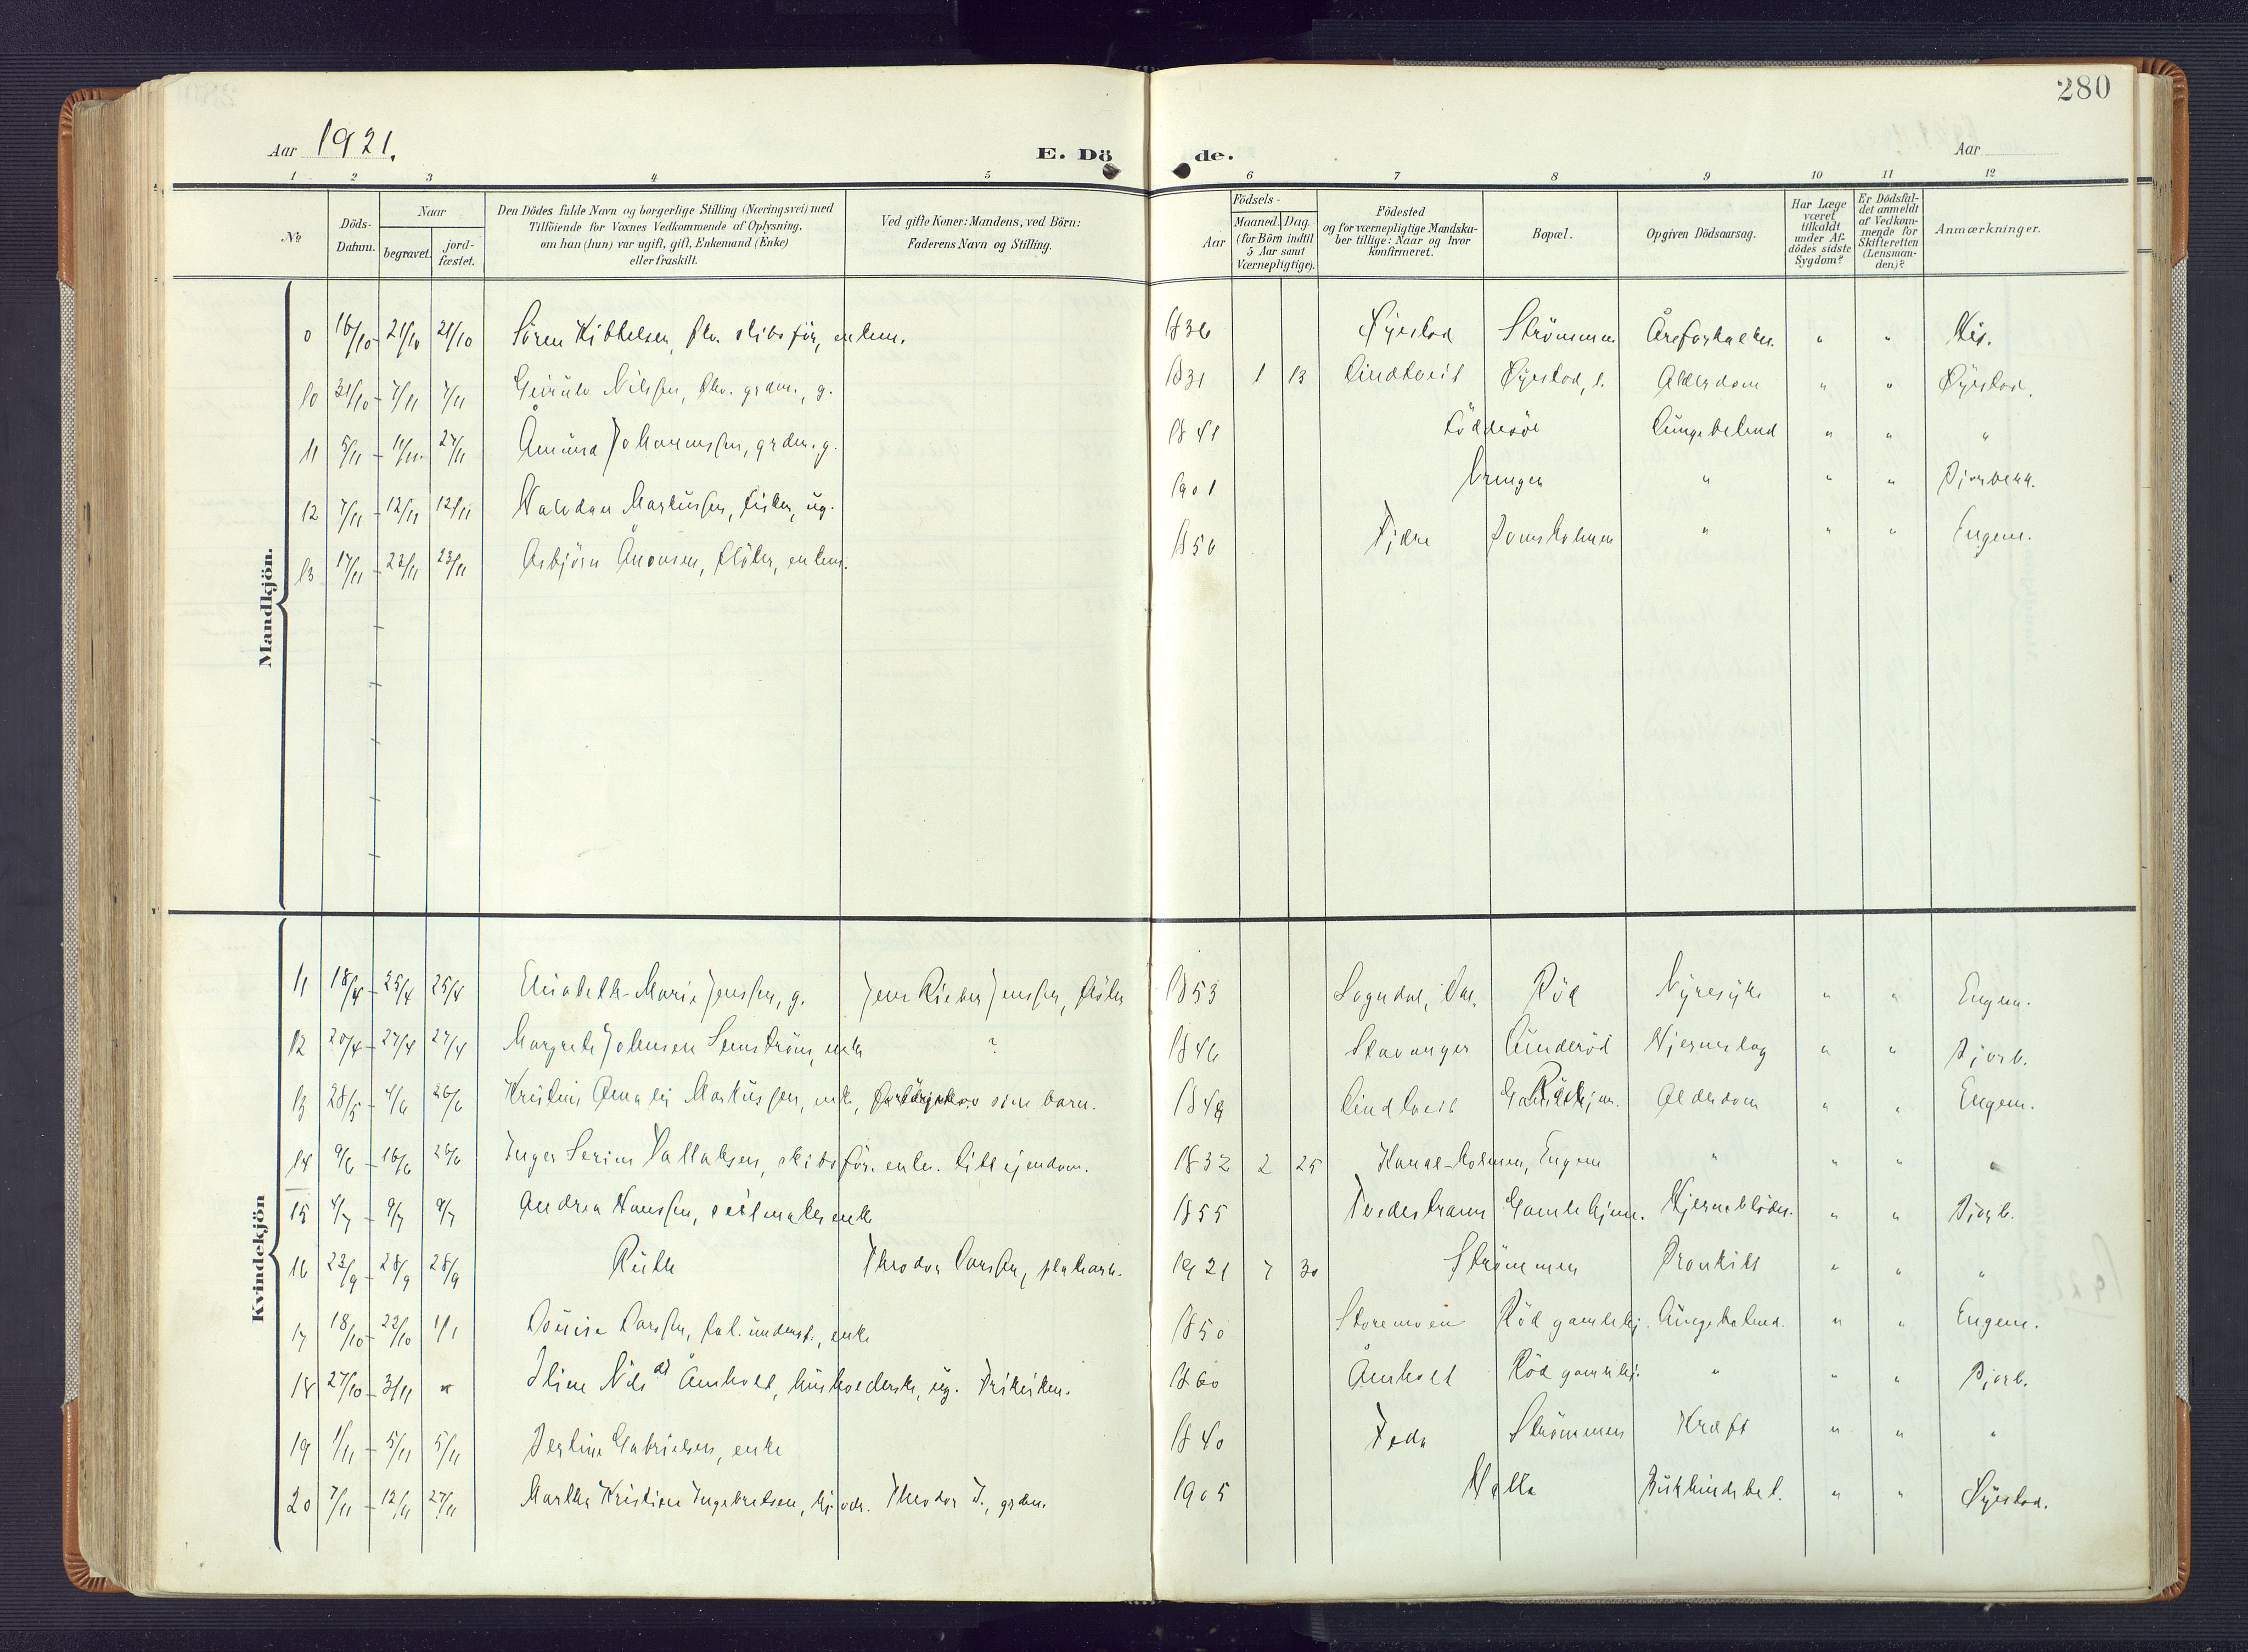 280
Aar 1921.
E. Dö de.
Aar
1 2 3 4 5 6 7 8 9 10 11 12
No
Döds-Datum.
Naar
begravet.
jord-fæstet.
Den Dödes fulde Navn og borgerlige Stilling (Næringsvei) med
Tilföiende for Voxnes Vedkommende af Oplysning,
om han (hun) var ugift, gift, Enkemand (Enke)
eller fraskilt.
Ved gifte Koner: Mandens, ved Börn:
Faderens Navn og Stilling.
Födsels-
Aar
Maaned. Dag.
(for Börn indtil
5 Aar samt
Værnepligtige).
Födested
og for værnepligtige Mandska-
ber tillige: Naar og hvor
konfirmeret.
Bopæl.
Opgiven Dödsaarsag.
Har Læge
været
tilkaldt
under Af-
dödes sidste
Sygdom?
Er Dödsfal-
det anmeldt
af Vedkom-
mende for
Skifteretten
(Lensman-
den)?
Anmærkninger.
Mandkjön.
16/10 - 21/10 21/10 Sören Kittelsen, skibsför, enkem. 1836 Öyestad Strömmen Åreforkalkn. " " His.
10 31/10 - 7/11 7/11 Nilssen, grdm., g. 1831 1 13 Lindtveit Öyestad, Alderdom " " Öyestad.
11 5/11 - 11/11 27/11 Åmund Johannessen, grdm. g. 1841 Löddesöl Lungebetend " " "
12 7/11 - 12/11 12/11 Halvdan Markussen, fisker, ug. 1901 Vrengen " " " Bjorbekk.
13 17/11 - 23/11 23/11 Asbjörn Ånonsen, flöter, enkem. 1850 Fjære " " " Engem.
Kvindekjön
11 18/4 - 25/4 25/4 Elisabeth Marie Jenssen, g. Jens Rieber Jenssen, flöter 1853 Sogndal, Dal. Röd Nyresyke " " Engem.
12 20/4 - 27/4 27/4 Margrete Johnsen enke ? 1846 Stavanger Lunderöd Hjerneslag " " Bjorb.
13 28/5 - 4/6 26/6 Kristine Amalie Markussen, enke, sine barn. Lindtveit Alderdom " " Engem.
14 9/6 - 16/6 26/6 Inger Serine skibsför. enke. 1832 2 25 Engem " " " "
15 4/7 - 9/7 9/7 Andrea Hanssen, seilmaker enke 1855 Tvedestrand Gamlehjem. " " Bjorb.
16 23/9 - 28/9 28/9 Ruth Theodor Larssen, 1921 7 30 Strömmen Bronkitt " " "
17 18/10 - 22/10 1/1 Louise Larssen, fat. underst., enke 1850 Storemoen Röd gamlehj. Lungebetend. " " Engem.
18 27/10 - 3/11 " Nilsd. Åmholt, husholderske, ug. 1860 Åmholt Röd gamlehj. " " " Bjorb.
19 1/11 - 5/11 5/11 Gabrielsen, enke 1840 Feda Strömmen Kræft " " "
20 7/11 - 12/11 27/11 Martha Kristine Ingebretsen, Theodor I., grdm. 1905 " " Öyestad.